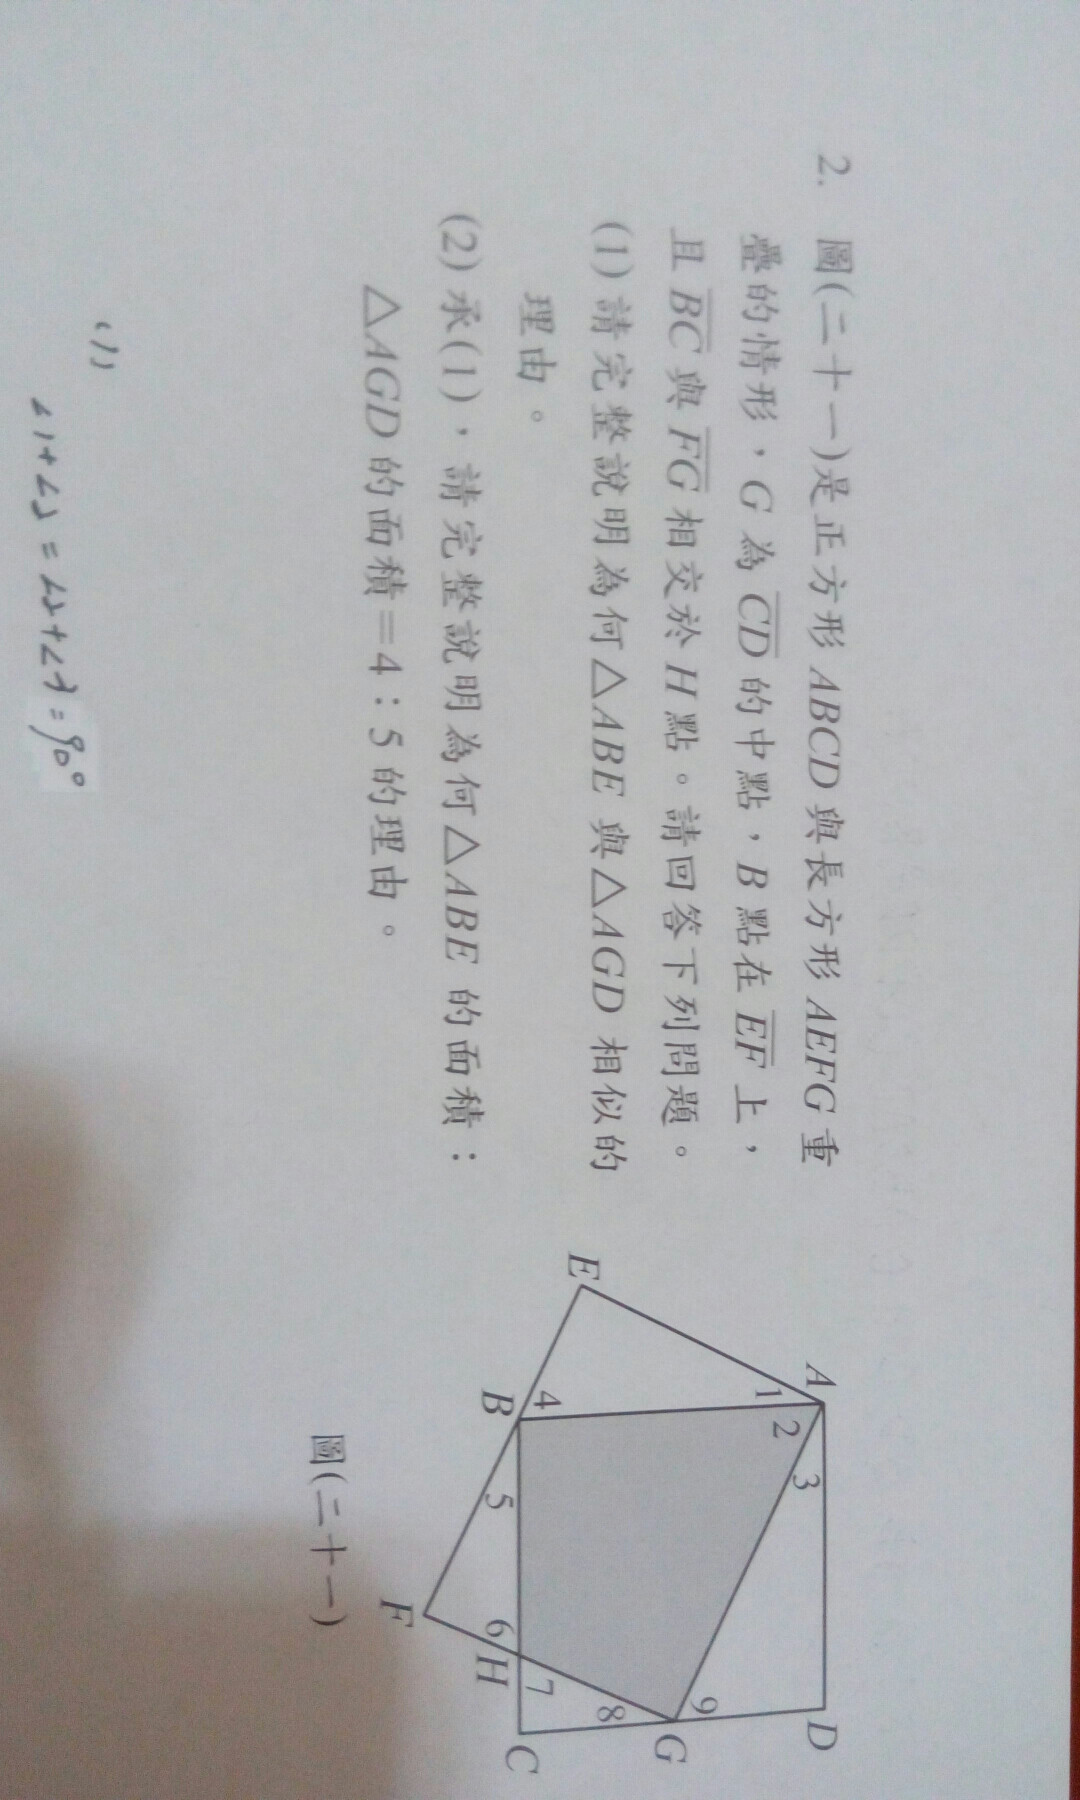 2. 圖(二十一)是正方形 ABCD 與長方形 AEFG 重
疊的情形，G 為 CD 的中點，B 點在 EF 上，
且 BC 與 FG 相交於 H 點。請回答下列問題。
(1) 請完整說明為何△ABE 與△AGD 相似的
理由。
(2) 承(1)，請完整說明為何△ABE 的面積：
△AGD 的面積=4：5 的理由。
A
D
E
1
2
3
4
B
5
9
G
8
7
6
H
C
F
圖(二十一)
(1)
∠1+∠2=∠2+∠3=90°